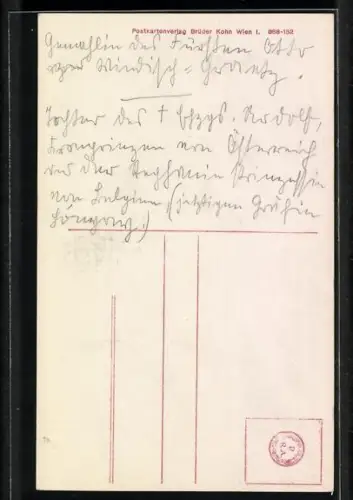 Postkartenverlag Brüder Kohn Wien I. 868-152
Gemahlin des Fürsten Otto
Windisch-Graetz.
Tochter des † Ehzgs. Rudolf,
Kronprinzen von Österreich
und der Stephanie Prinzessin
von Belgien (jetztigen Gräfin
Lónyay.)